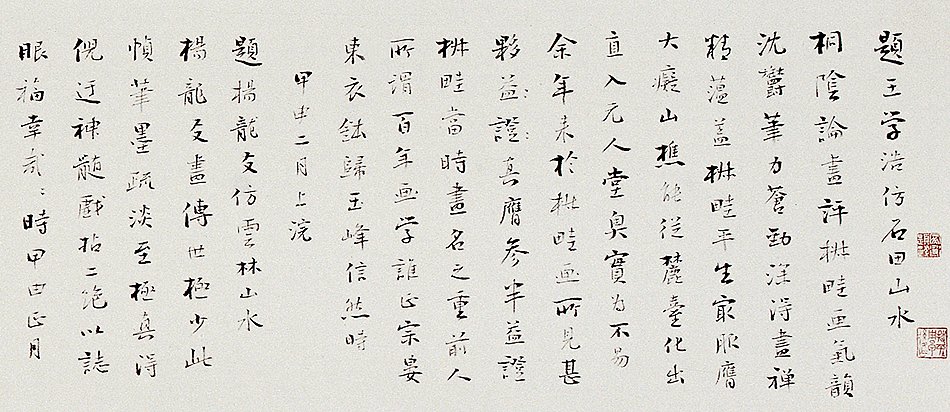 題王学浩仿石田山水
桐陰論畫評椒畦画氣韻
沈鬱筆力蒼勁深得畫禅
精蕴蓋椒畦平生最服膺
大癡山樵能従麓臺化出
直入元人堂奥實为不易
余年来於椒畦画所見甚
夥益證真膺参半益證
椒畦當時畫名之重前人
所謂百年画学誰正宗晏
東衣鉢歸玉峰信然時
甲申二月上浣
題楊龍友仿雲林山水
楊龍友畫傳世極少此
幀筆墨疏淡至極真得
倪迂神髓戲拈二绝以誌
眼福幸哉〻時甲申正月